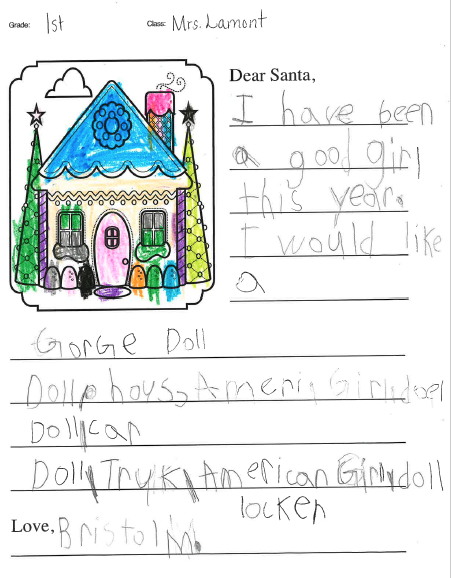 Grade: 1st Class: Mrs. Lamont
Dear Santa,
I have been
a good girl
this year.
I would like
a
GorGE Doll
Doll, houys, Ameri Girl
Doll, car
Doll, Truk, American Girl, doll
locker
Love, Bristol M.